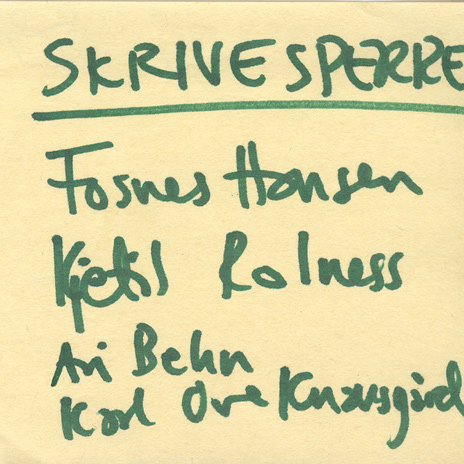 SKRIVESPERRE
Fosnes Hansen
Kjetil Rolness
Ari Behn
Karl Ove Knausgård